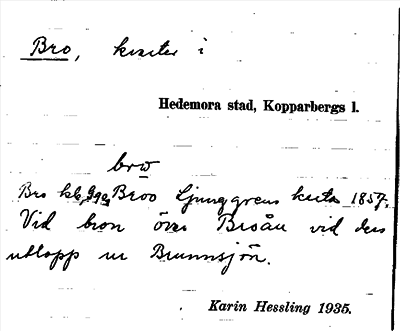 Bro, kvarter i
Hedemora stad, Kopparbergs l.
brω
Bro kb, Broo Ljunggrens karta 1857.
Vid bron över Broån vid dess
utlopp ur Brunnsjön.
Karin Hessling 1935.